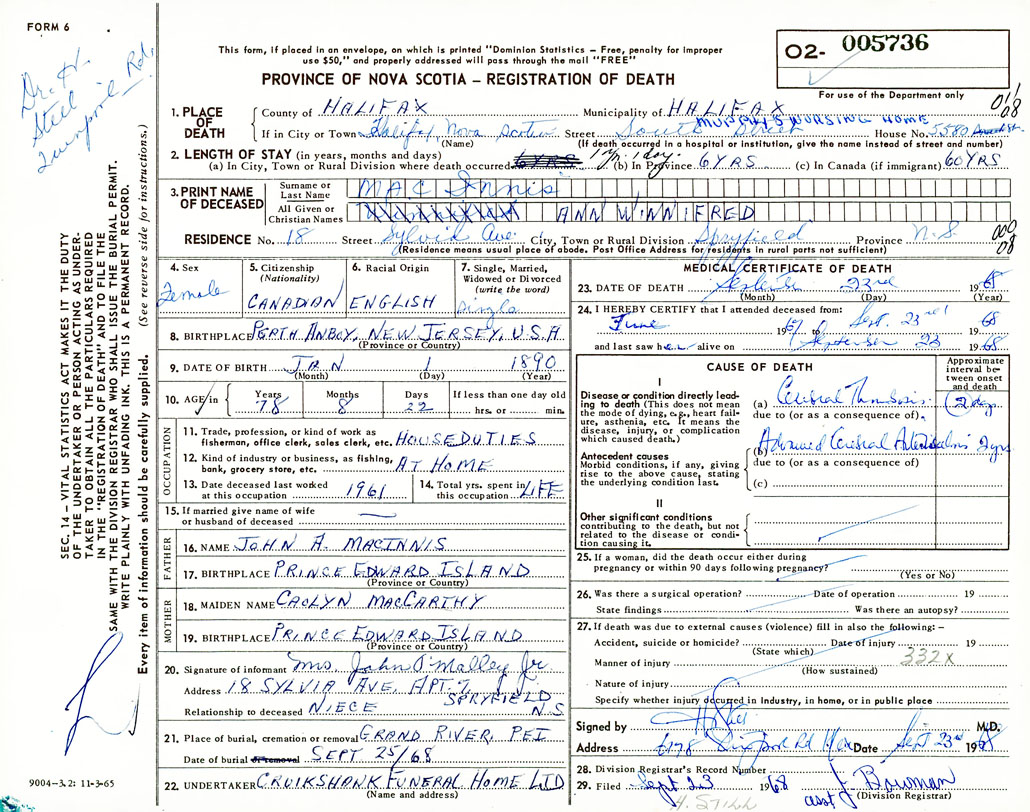 FORM 6
Dr. H.
Steel
Rd.
This form, if placed in an envelope, on which is printed "Dominion Statistics – Free, penalty for improper
use $50," and properly addressed will pass through the mail "FREE"
PROVINCE OF NOVA SCOTIA – REGISTRATION OF DEATH
02- 005736
For use of the Department only
1. PLACE OF DEATH
County of HALIFAX Municipality of HALIFAX
MURPHY'S NURSING HOME
If in City or Town Halifax, Nova Scotia Street South Street House No. 5580
(Name) (If death occurred in a hospital or institution, give the name instead of street and number)
2. LENGTH OF STAY (in years, months and days)
(a) In City, Town or Rural Division where death occurred (b) In Province 6 YRS (c) In Canada (if immigrant) 60 YRS
3. PRINT NAME OF DECEASED
Surname or Last Name MAC INNIS
All Given or Christian Names ANN WINNIFRED
RESIDENCE No. 18 Street Sylvia Ave. City, Town or Rural Division Spryfield Province N.S.
(Residence means usual place of abode. Post Office Address for residents in rural parts not sufficient)
4. Sex
Female
5. Citizenship
(Nationality)
CANADIAN
6. Racial Origin
ENGLISH
7. Single, Married,
Widowed or Divorced
(write the word)
Single
8. BIRTHPLACE PERTH ANBOY, NEW JERSEY, U.S.A
(Province or Country)
9. DATE OF BIRTH JAN 1 1890
(Month) (Day) (Year)
10. AGE in Years Months Days If less than one day old
78 8 22 hrs. or min.
OCCUPATION
11. Trade, profession, or kind of work as
fisherman, office clerk, sales clerk, etc. HOUSEDUTIES
12. Kind of industry or business, as fishing,
bank, grocery store, etc. AT HOME
13. Date deceased last worked
at this occupation 1961
14. Total yrs. spent in
this occupation LIFE
15. If married give name of wife
or husband of deceased —
FATHER
16. NAME JOHN A. MACINNIS
17. BIRTHPLACE PRINCE EDWARD ISLAND
(Province or Country)
MOTHER
18. MAIDEN NAME CAOLYN MACCARTHY
19. BIRTHPLACE PRINCE EDWARD ISLAND
(Province or Country)
20. Signature of informant Mrs. John O'Malley Jr.
Address 18 SYLVIA AVE, APT. 7,
SPRYFIELD
Relationship to deceased NIECE N.S
21. Place of burial, cremation or removal GRAND RIVER, PEI
Date of burial or removal SEPT 25/68
22. UNDERTAKER CRUIKSHANK FUNERAL HOME LTD
(Name and address)
MEDICAL CERTIFICATE OF DEATH
23. DATE OF DEATH 23rd 1968
(Month) (Day) (Year)
24. I HEREBY CERTIFY that I attended deceased from:
June 19 to Sept. 23rd 68
and last saw her alive on September 23 1968
CAUSE OF DEATH
Approximate
interval be-
tween onset
and death
I
Disease or condition directly lead-
ing to death (This does not mean
the mode of dying, e.g., heart fail-
ure, asthenia, etc. It means the
disease, injury, or complication
which caused death.)
(a) Cerebral Thrombosis 2 days
due to (or as a consequence of).
Antecedent causes
Morbid conditions, if any, giving
rise to the above cause, stating
the underlying condition last.
(b) Advanced Cerebral yrs
due to (or as a consequence of)
(c)
II
Other significant conditions
contributing to the death, but not
related to the disease or condi-
tion causing it.
25. If a woman, did the death occur either during
pregnancy or within 90 days following pregnancy?
(Yes or No)
26. Was there a surgical operation? Date of operation 19
State findings Was there an autopsy?
27. If death was due to external causes (violence) fill in also the following: –
Accident, suicide or homicide? Date of injury 19
(State which)
332X
Manner of injury
(How sustained)
Nature of injury
Specify whether injury occurred in Industry, in home, or in public place
Signed by M.D.
Address 6178 Rd Hfx Date Sept 23rd 1968
28. Division Registrar's Record Number
29. Filed Sept 23 1968 J. Bowman
asst (Division Registrar)
SEC. 14 – VITAL STATISTICS ACT MAKES IT THE DUTY
OF THE UNDERTAKER OR PERSON ACTING AS UNDER-
TAKER TO OBTAIN ALL THE PARTICULARS REQUIRED
IN THE "REGISTRATION OF DEATH" AND TO FILE THE
SAME WITH THE DIVISION REGISTRAR WHO SHALL ISSUE THE BURIAL PERMIT.
WRITE PLAINLY WITH UNFADING INK. THIS IS A PERMANENT RECORD.
Every item of information should be carefully supplied. (See reverse side for instructions.)
9004–3.2: 11-3-65